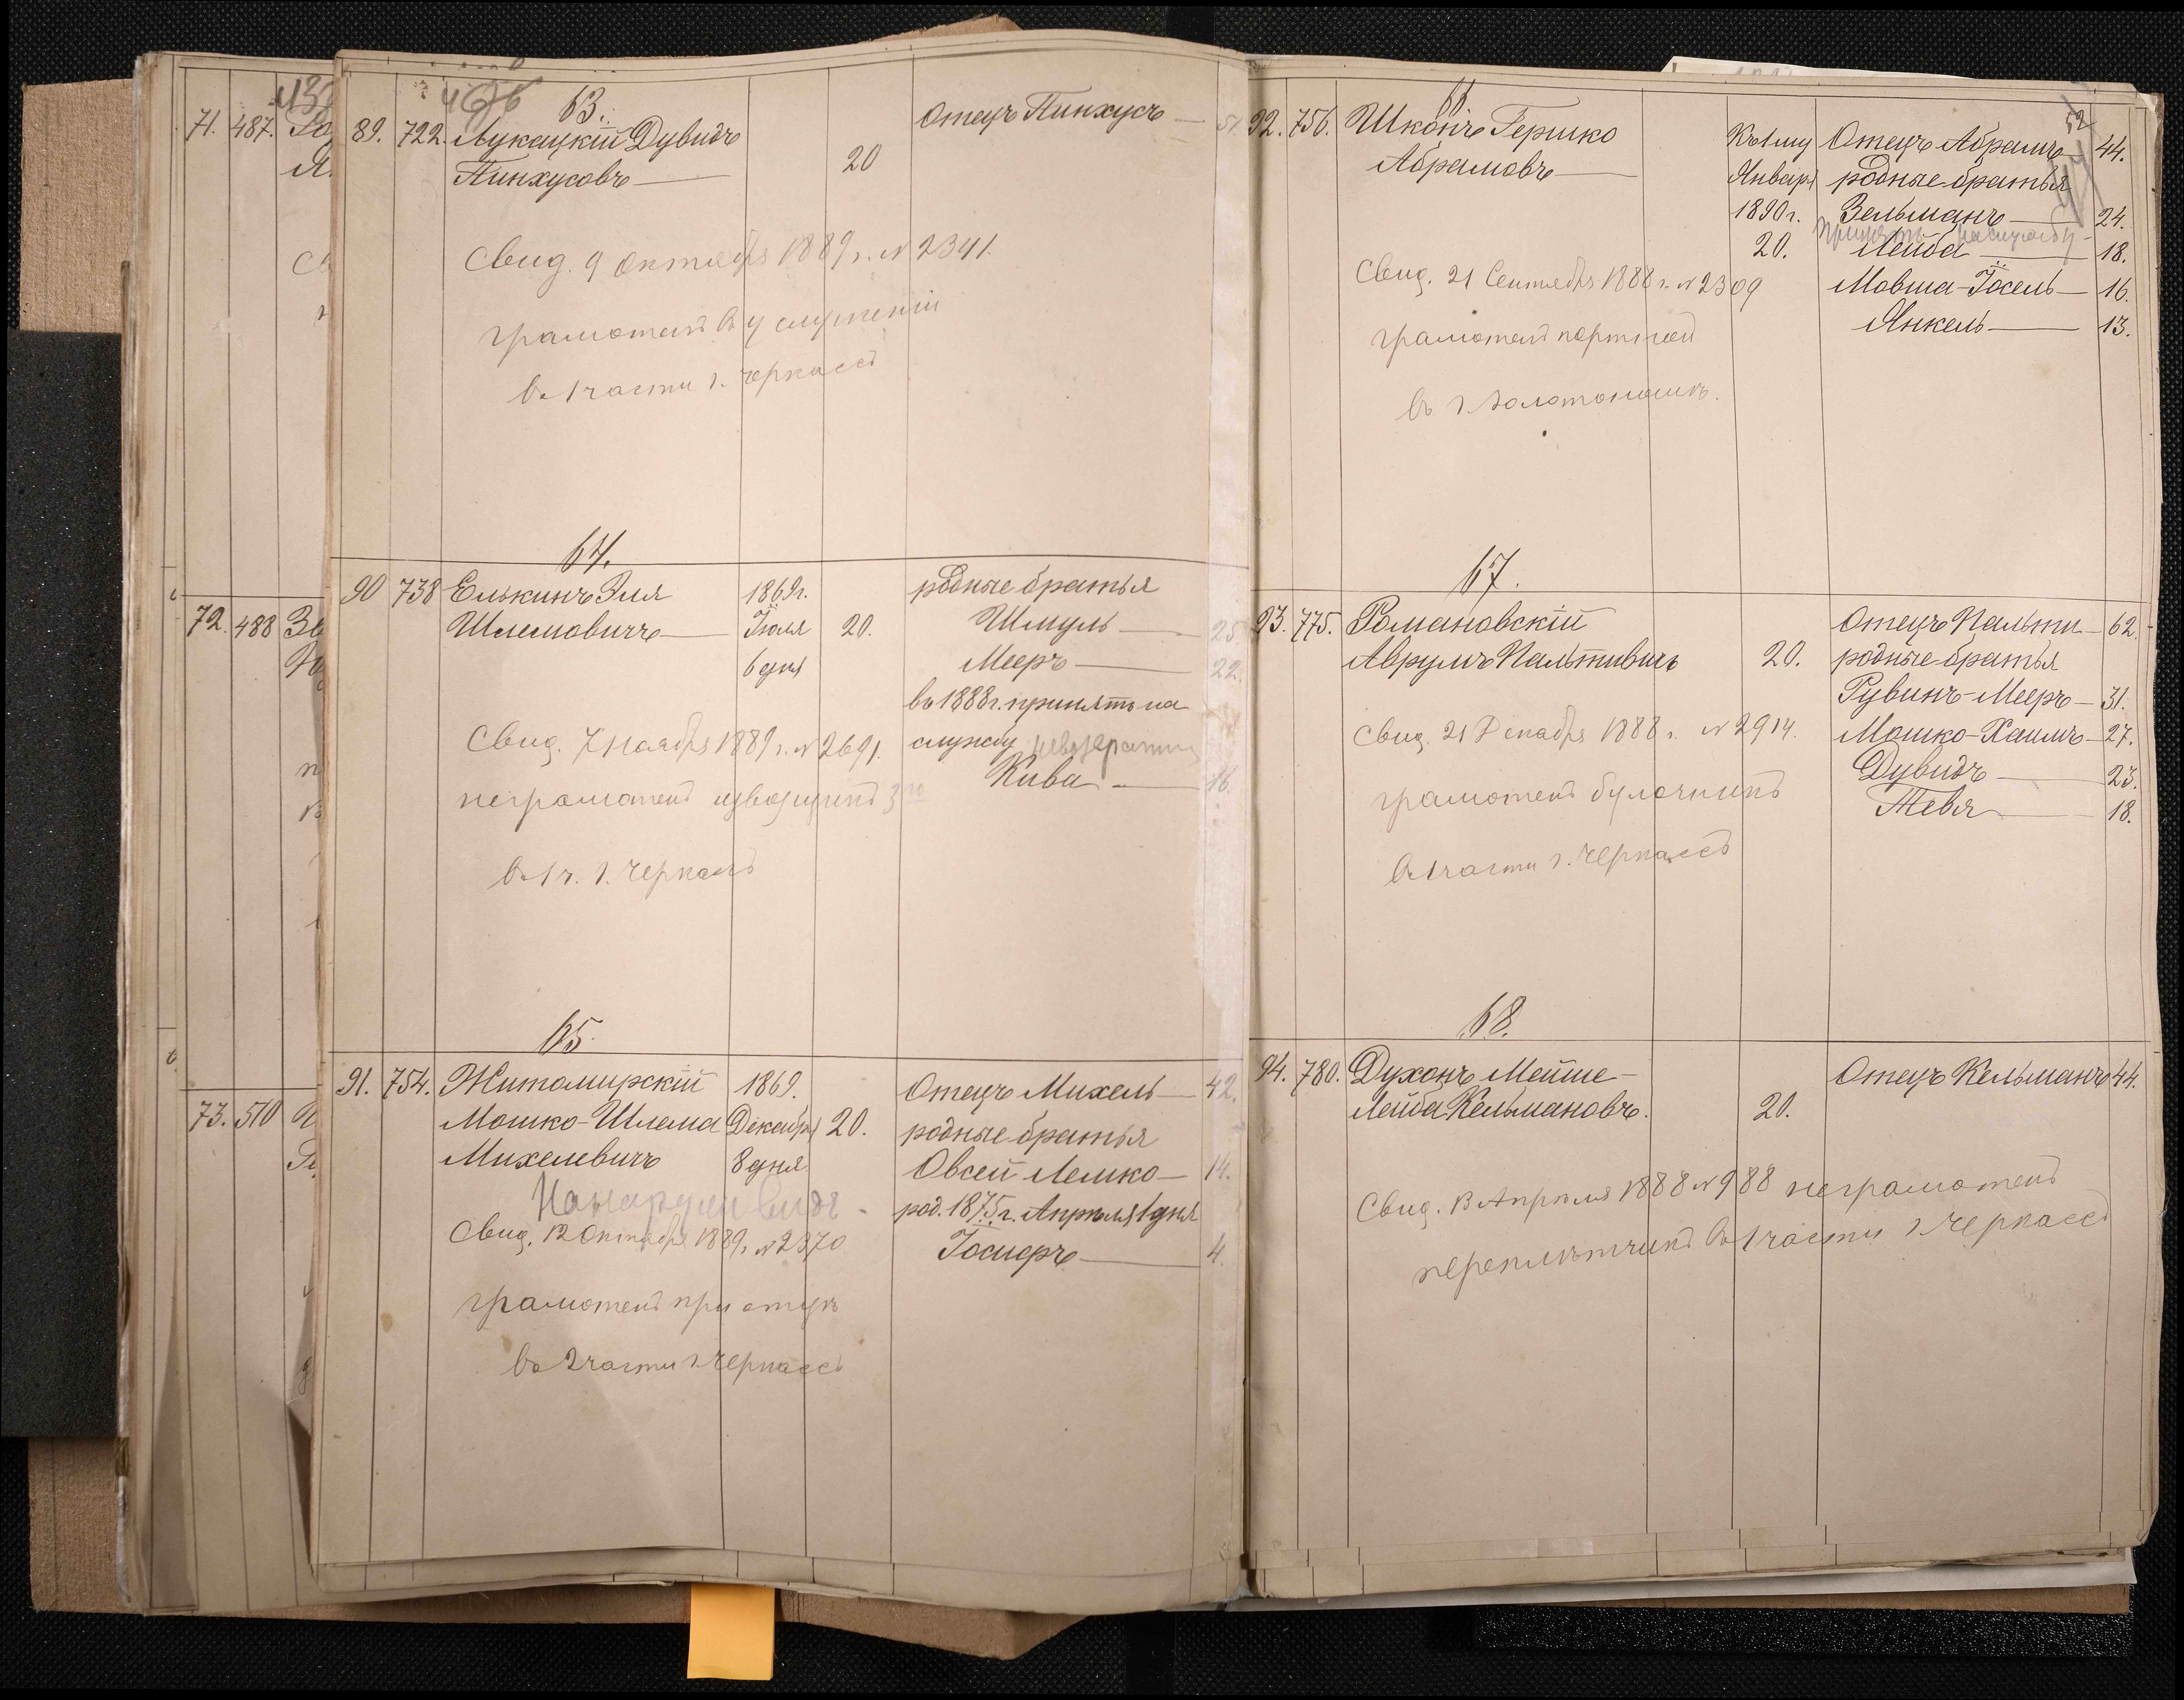 71. 487.
72. 488
73. 510
63.
89. 722. Лукацкій Дувидъ
Пинхусовъ
20
Отецъ Пинхусъ
51
Свид. 9 Октября 1889 г. № 2341.
грамотенъ въ услуженіи
въ 1 части г. Черкассъ
64.
90 738 Елькинъ Эля
Шлемовичъ
1869г.
Іюля
6 дня
20.
родные братья
Шмуль 25.
Мееръ 22.
въ 1888 г. принятъ на
службу
Кива 16.
Свид. 7 Ноября 1889 г. № 2691.
неграмотенъ извозчикъ
въ 1 ч. г. Черкассъ
65.
91. 754. Житомирскій
Мошко-Шлема
Михелевичъ
1869.
Декабря
8 дня
20.
Отецъ Михель 42.
родные братья
Овсей Лешко 14.
род. 1875 г. Апрѣля 1 дня
Іосиоръ 4.
Свид. 12 Октября 1889 г. № 2370
грамотенъ при отцѣ
въ 2 части г. Черкассъ
66.
52
92. 756. Шконъ Гершко
Абрамовъ
Къ 1му
Января
1890 г.
20.
Отецъ Абрамъ 44.
родные братья
Зельманъ 24.
принятъ на службу
Лейба 18.
Мовша-Іосель 16.
Янкель 13.
Свид. 21 Сентября 1888 г. № 2309
грамотенъ портной
въ г. Золотоношѣ.
67.
93. 775. Романовскій
Аврумъ Пальтивичъ
20.
Отецъ Пальти 62.
родные братья
Рувинъ-Мееръ 31.
Мошко-Хаимъ 27.
Дувидъ 23.
Тевя 18.
Свид. 21 Декабря 1888 г. № 2914.
грамотенъ булочникъ
въ 1 части г. Черкассъ
68.
94. 780. Духонъ Мейше-
Лейба Кельмановъ.
20.
Отецъ Кельманъ 44.
Свид. 13 Апрѣля 1888 № 988 неграмотенъ
переплетчикъ въ 1 части г. Черкассъ